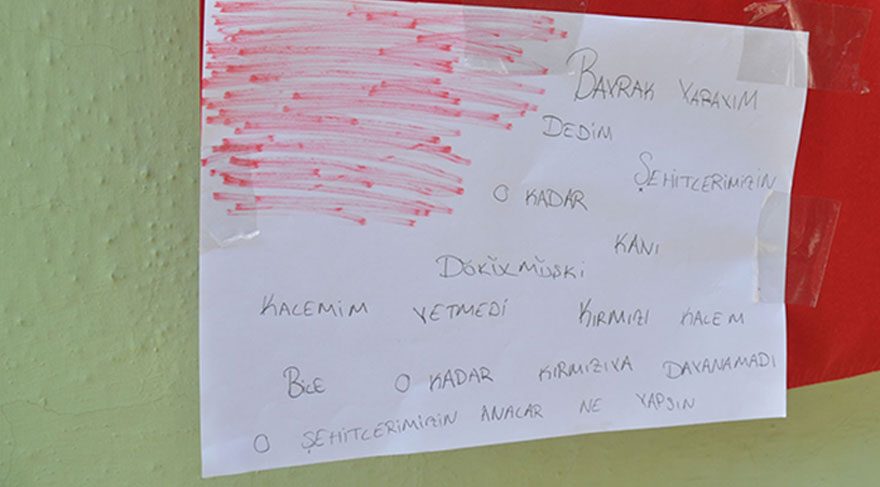 BAYRAK YAPAYIM
DEDİM
O KADAR ŞEHİTLERİMİZİN
KANI
DÖKÜLMÜŞKİ
KALEMİM YETMEDİ KIRMIZI KALEM
BİLE O KADAR KIRMIZIYA DAYANAMADI
O ŞEHİTLERİMİZİN ANALAR NE YAPSIN